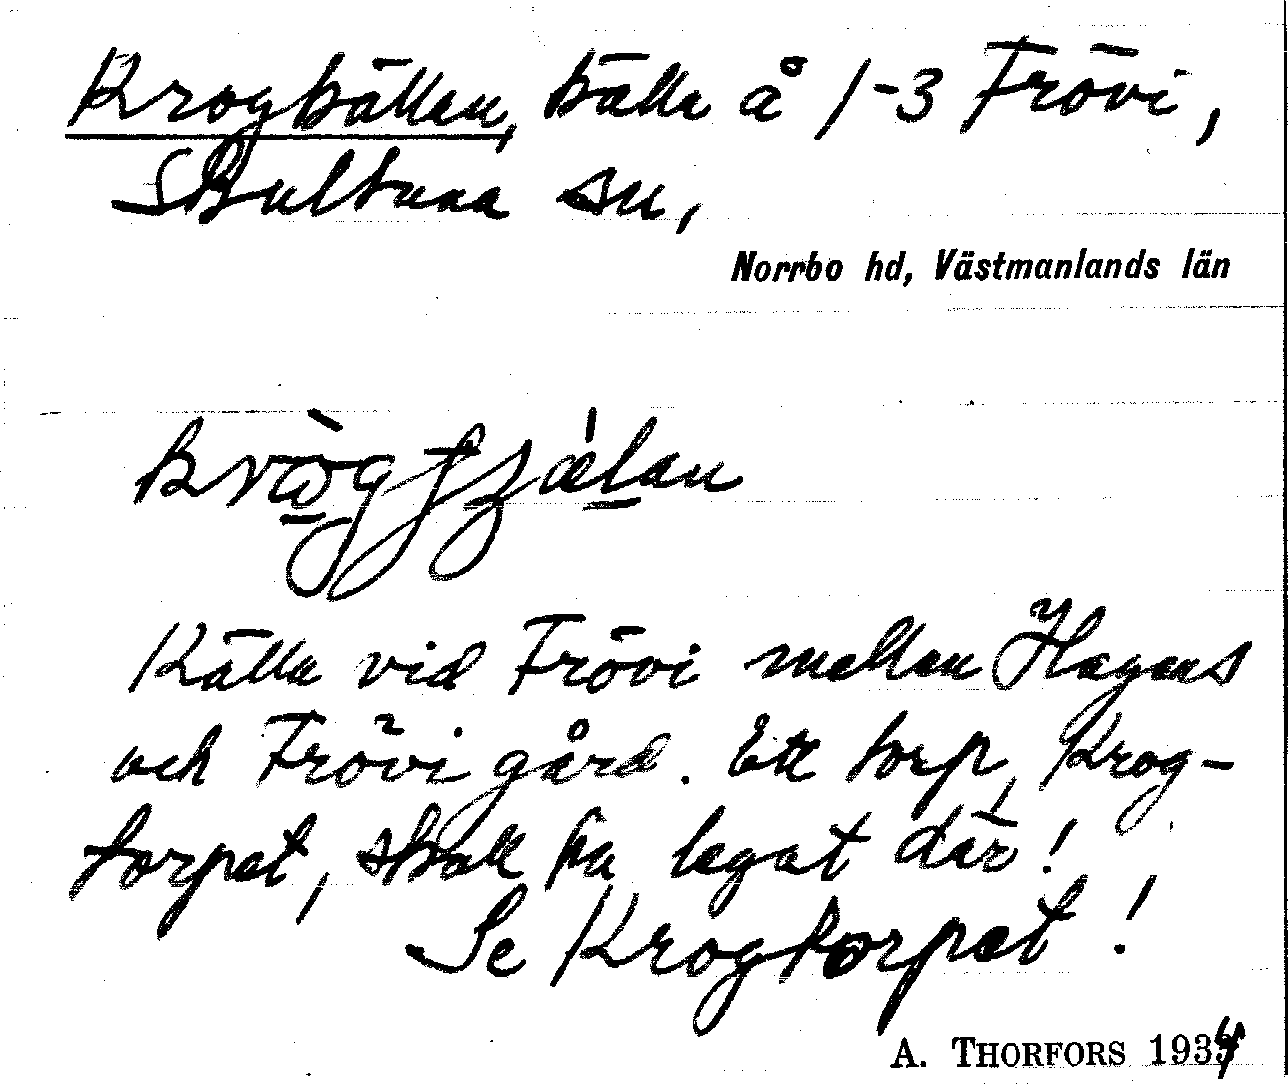 Krogkällan, källa å 1-3 Frövi,
Skultuna sn,
Norrbo hd, Västmanlands län
Källa vid Frövi mellan Hagens
och Frövi gård. Ett torp, Krog-
torpet, skall ha legat där!
Se Krogtorpet!
A. THORFORS 1934